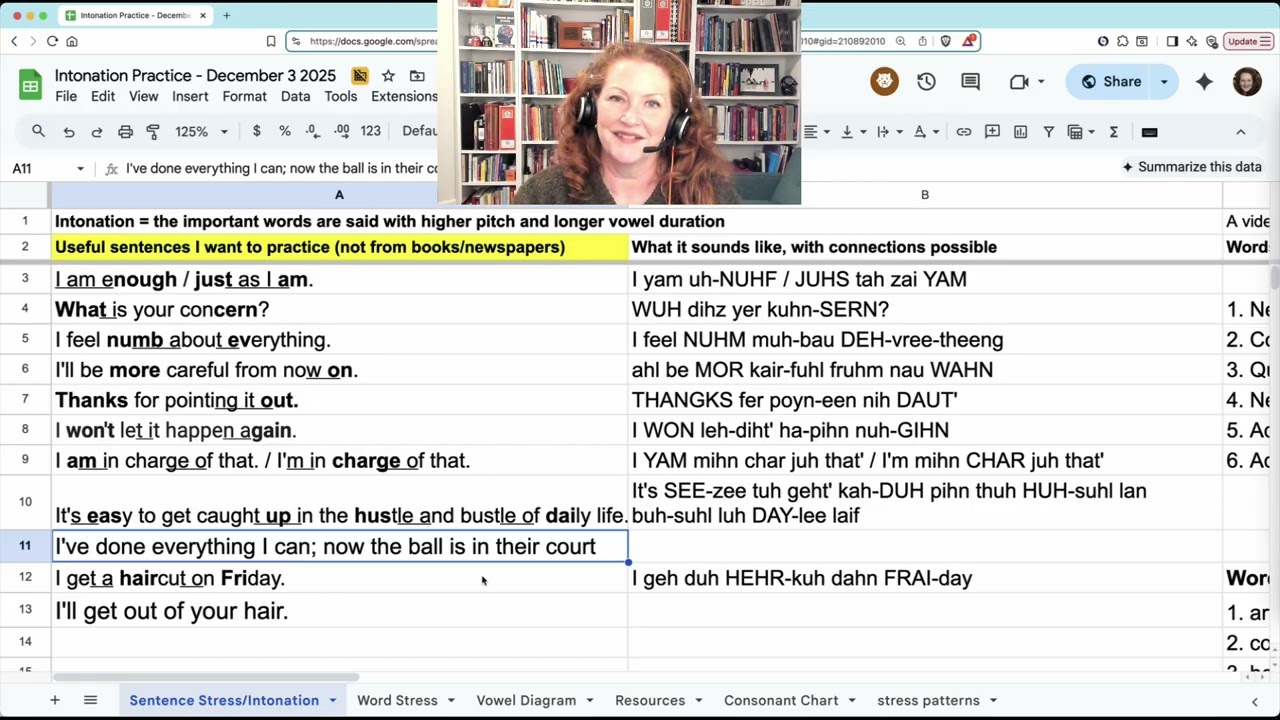 Intonation Practice - Decembe
https://docs.google.com/sprea
00#gid=210892010
Update
Intonation Practice - December 3 2025
File Edit View Insert Format Data Tools Extensions
Share
125% $ % .0 .00 123 Defau
A11 fx I've done everything I can; now the ball is in their co
Summarize this data
A B
1 Intonation = the important words are said with higher pitch and longer vowel duration A vide
2 Useful sentences I want to practice (not from books/newspapers) What it sounds like, with connections possible Words
3 I am enough / just as I am. I yam uh-NUHF / JUHS tah zai YAM
4 What is your concern? WUH dihz yer kuhn-SERN? 1. Ne
5 I feel numb about everything. I feel NUHM muh-bau DEH-vree-theeng 2. Co
6 I'll be more careful from now on. ahl be MOR kair-fuhl fruhm nau WAHN 3. Qu
7 Thanks for pointing it out. THANGKS fer poyn-een nih DAUT' 4. Ne
8 I won't let it happen again. I WON leh-diht' ha-pihn nuh-GIHN 5. Ac
9 I am in charge of that. / I'm in charge of that. I YAM mihn char juh that' / I'm mihn CHAR juh that' 6. Ac
10 It's easy to get caught up in the hustle and bustle of daily life. It's SEE-zee tuh geht' kah-DUH pihn thuh HUH-suhl lan
buh-suhl luh DAY-lee laif
11 I've done everything I can; now the ball is in their court
12 I get a haircut on Friday. I geh duh HEHR-kuh dahn FRAI-day Wor
13 I'll get out of your hair. 1. ar
14 2. co
15
Sentence Stress/Intonation Word Stress Vowel Diagram Resources Consonant Chart stress patterns